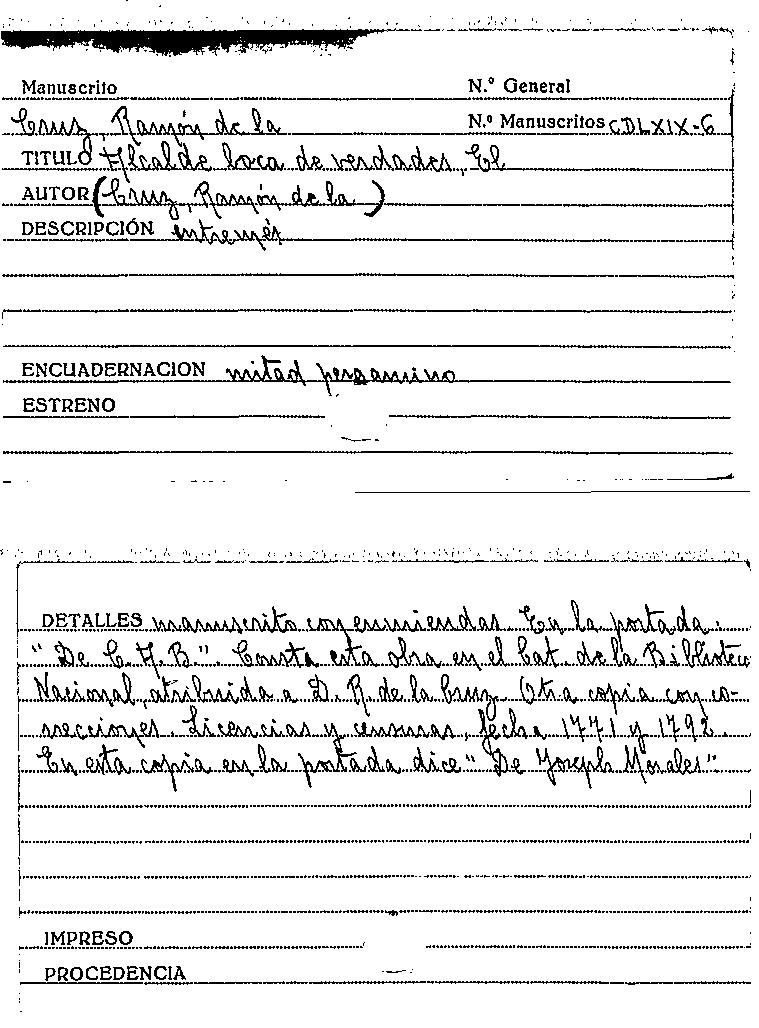 Manuscrito N.º General
Cruz, Ramón de la N.º Manuscritos CDLXIX-6
TITULO Alcalde boca de verdades, El
AUTOR (Cruz, Ramón de la)
DESCRIPCIÓN entremés
ENCUADERNACION mitad pergamino
ESTRENO
DETALLES manuscrito con enmiendas. En la portada:
"De C. A. B.". Consta esta obra en el Cat. de la Biblioteca
Nacional, atribuida a D. R. de la Cruz. Otra copia con co-
rrecciones. Licencias y censuras, fecha 1771 y 1792.
En esta copia en la portada dice "De Joseph Morales"
IMPRESO
PROCEDENCIA